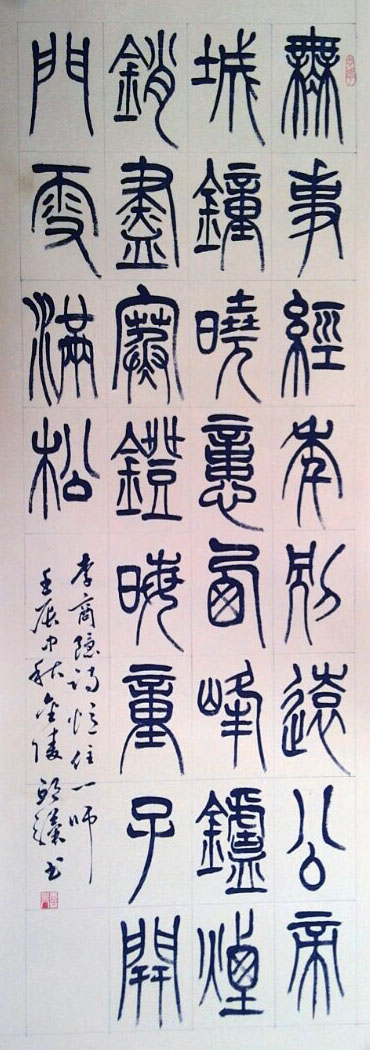 無事經年別遠公帝
城鐘曉憶西峰鑪煙
銷盡寒鐙晦童子開
門雪滿松
李商隱詩憶住一師
壬辰中秋金陵 书